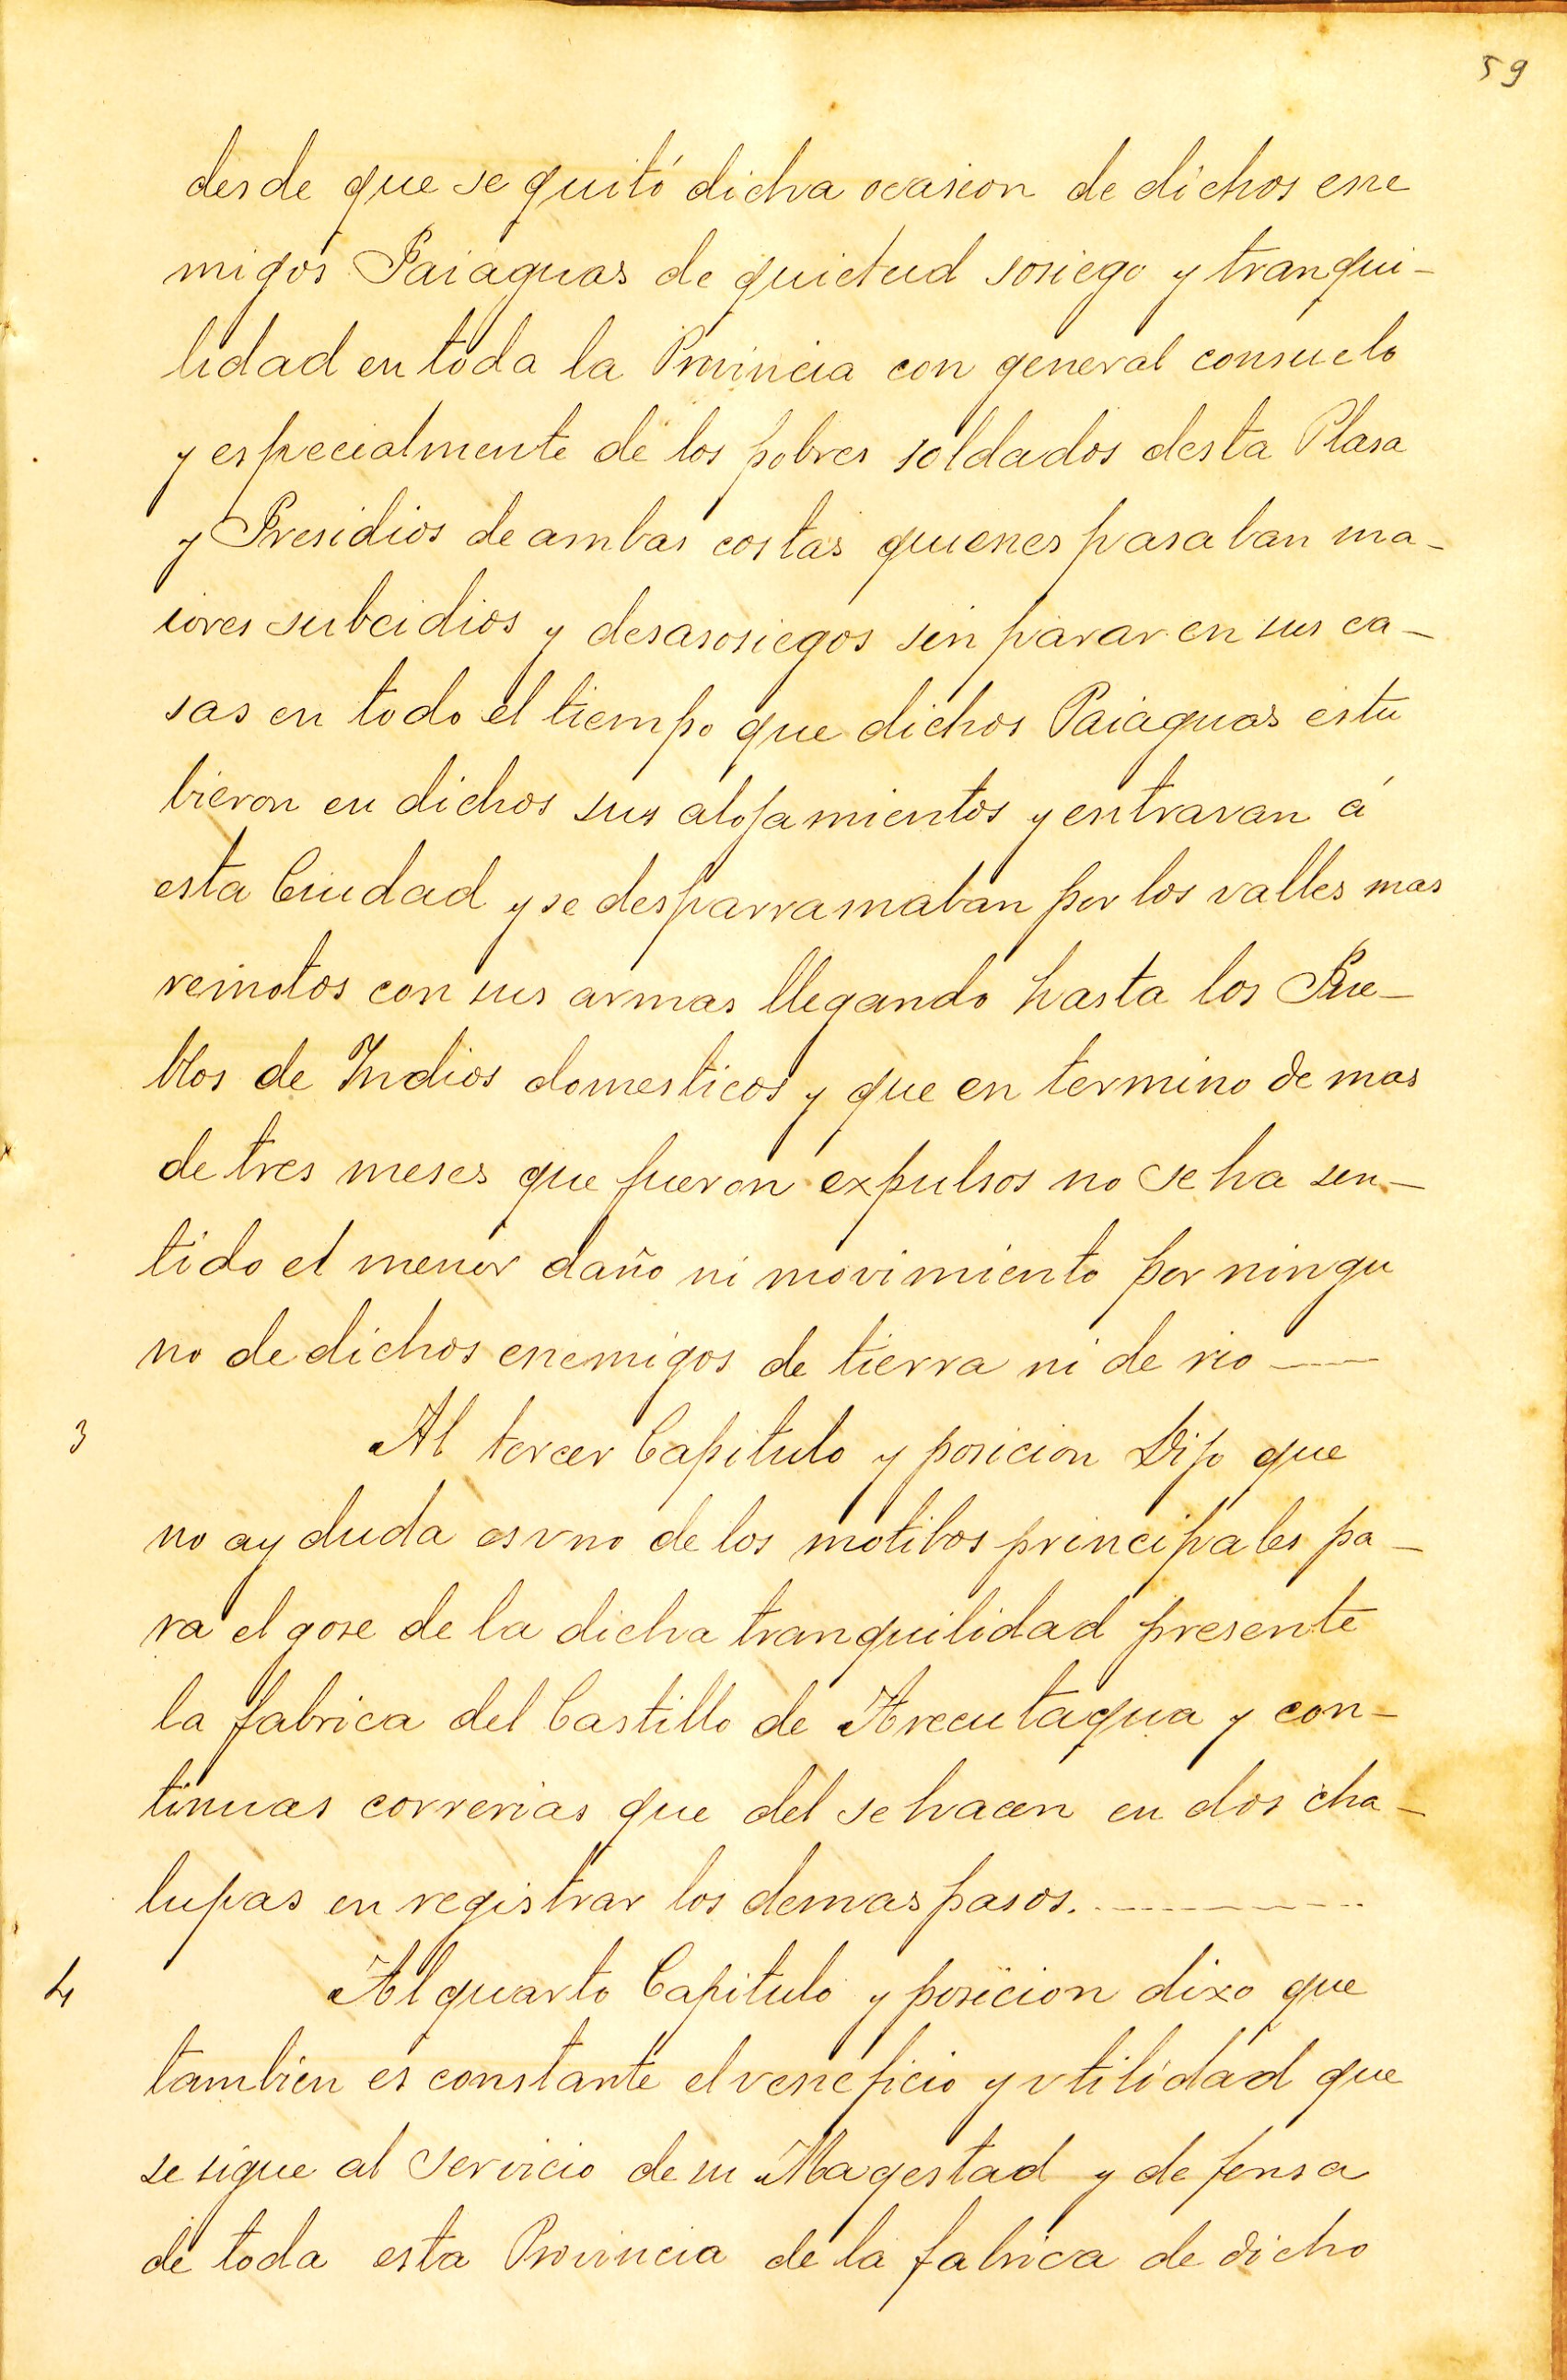 59
desde que se quitó dicha ocasion de dichos ene
migos Paiaguas de quietud sosiego y tranqui-
lidad en toda la Provincia con general consuelo
y especialmente de los pobres soldados desta Plasa
y Presidios de ambas costas quienes pasaban ma-
iores subcidios y desasosiegos sin parar en sus ca-
sas en todo el tiempo que dichos Paiaguas estu
bieron en dichos sus alojamientos y entravan á
esta Ciudad y se desparramaban por los valles mas
remotos con sus armas llegando hasta los Pue-
blos de Indios domesticos y que en termino de mas
de tres meses que fueron expulsos no se ha sen-
tido el menor daño ni movimiento por ningu
no de dichos enemigos de tierra ni de rio ——
3 Al tercer Capitulo y posicion Dijo que
no ay duda es vno de los motibos principales pa-
ra el gose de la dicha tranquilidad presente
la fabrica del Castillo de Arecutagua y con-
tinuas correrias que del se hacen en dos cha-
lupas en registrar los demas pasos. ————
4 Al quarto Capitulo y posicion dixo que
tambien es constante el veneficio y vtilidad que
se sigue al servicio de su Magestad y defensa
de toda esta Provincia de la fabrica de dicho